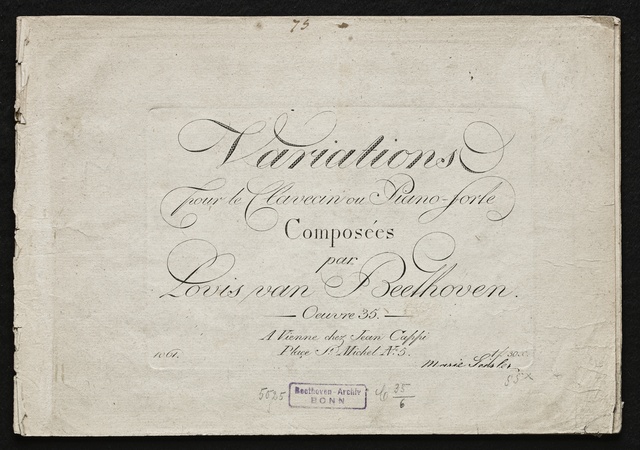 73.
Variations
pour le Clavecin ou Piano-forte
Composées
par
Lovis van Beethoven.
Oeuvre 35.
A Vienne chez Jean Cappi
Place St. Michel No. 5.
1061.
1f. 30x.
Marie
Beethoven-Archiv
BONN
35
6